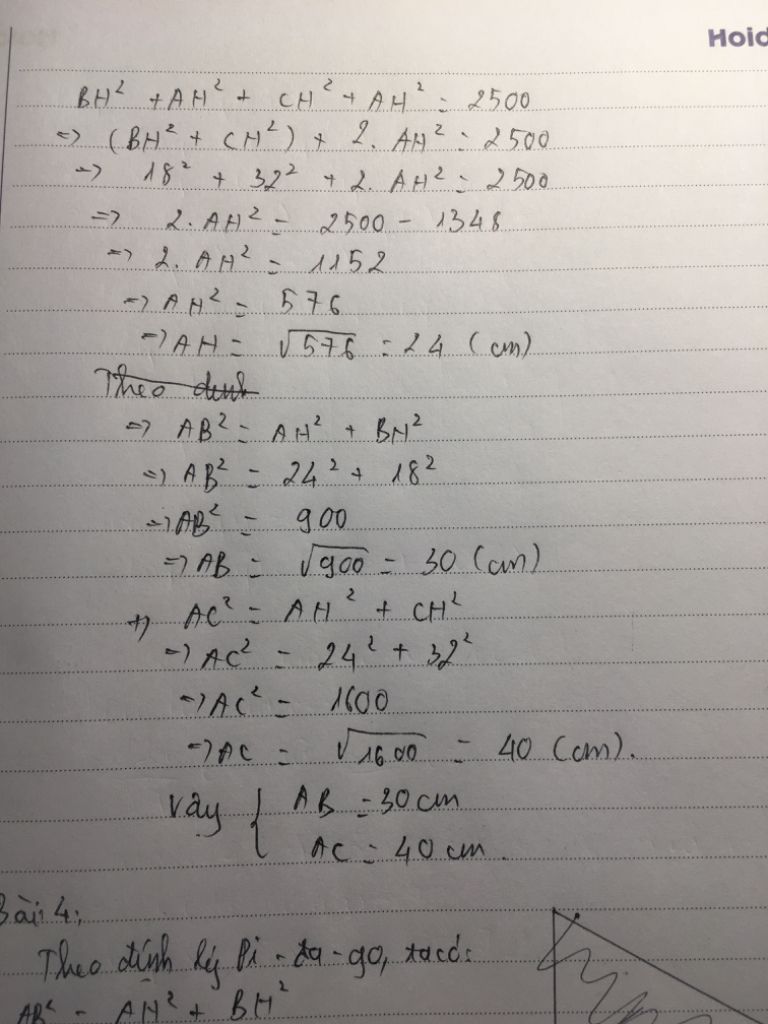 Hoid
BH² + AH² + CH² + AH² = 2500
=> (BH² + CH²) + 2. AH² = 2500
=> 18² + 32² + 2. AH² = 2500
=> 2. AH² = 2500 - 1348
=> 2. AH² = 1152
=> AH² = 576
=> AH = √576 = 24 (cm)
Theo định
=> AB² = AH² + BH²
=> AB² = 24² + 18²
=> AB² = 900
=> AB = √900 = 30 (cm)
+) AC² = AH² + CH²
=> AC² = 24² + 32²
=> AC² = 1600
=> AC = √1600 = 40 (cm).
Vậy { AB = 30 cm
AC = 40 cm.
Bài 4:
Theo định lý Pi-ta-go, ta có:
AB² = AH² + BH²